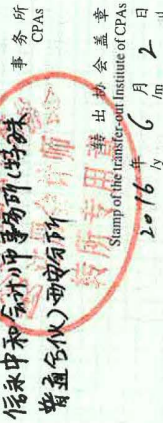 信永中和会计师事务所(特殊
普通合伙)西安分所
事务所
CPAs
转出协会盖章
Stamp of the transfer-out Institute of CPAs
2016年6月2日
/y /m /d
转所专用章